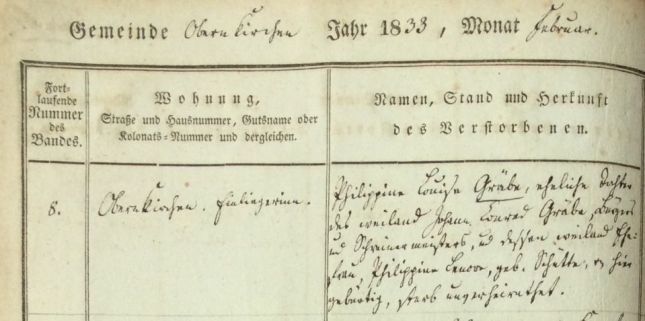 Gemeinde Obernkirchen Jahr 1833, Monat Februar.
Fort-
laufende
Nummer
des
Bandes.
Wohnung,
Straße und Hausnummer, Gutsname oder
Kolonats-Nummer und dergleichen.
Namen, Stand und Herkunft
des Verstorbenen.
8.
Obernkirchen. Einliegerinn.
Philippine Louise Gräbe, eheliche Tochter
des weiland Johann Conrad Gräbe, Bürgers
und Schreinermeisters, und dessen weiland Ehe-
frau, Philippine Lenore, geb. Schütte, hier
gebürtig, starb unverheirathet.